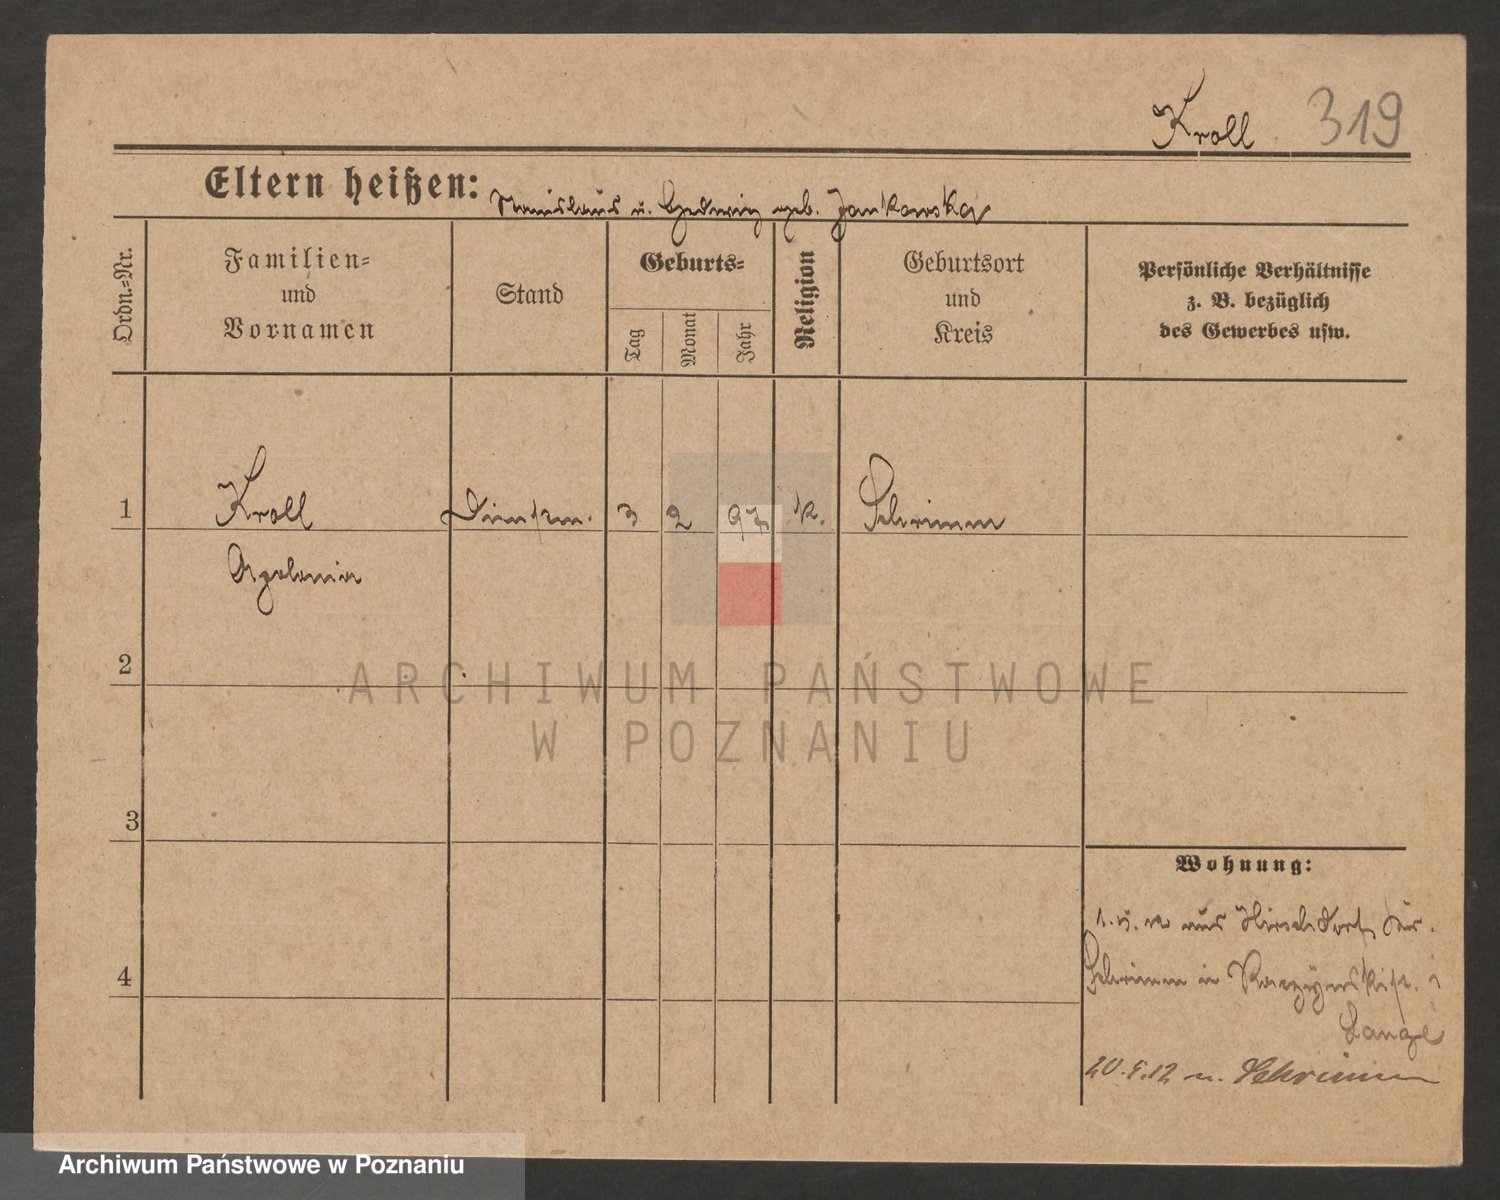 Kroll 319
Eltern heißen: Stanislaus u. Hedwig geb. Jankowska
Ordn.-Nr.
Familien-
und
Vornamen
Stand
Geburts-
Tag
Monat
Jahr
Religion
Geburtsort
und
Kreis
Persönliche Verhältnisse
z. B. bezüglich
des Gewerbes usw.
1 Kroll Dienstm. 3 2 97 k. Schrimm
Apolonia
2
3
4
Wohnung:
aus Hirschdorf Kr.
Schrimm in
Lange
n. Schrimm
ARCHIWUM PAŃSTWOWE
W POZNANIU
Archiwum Państwowe w Poznaniu